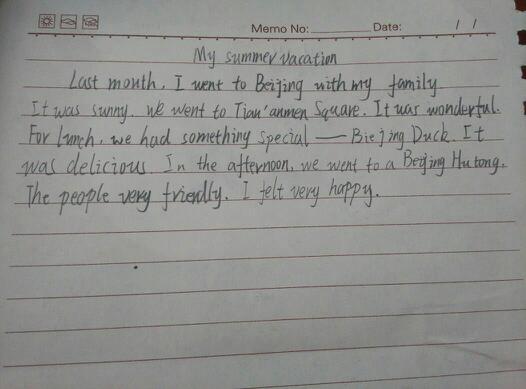 Memo No: Date: / /
My summer vacation
Last month, I went to Beijing with my family
It was sunny. We went to Tian'anmen Square. It was wonderful.
For lunch, we had something special — Biejing Duck. It
was delicious. In the afternoon, we went to a Beijing Hutong.
The people very friendly. I felt very happy.